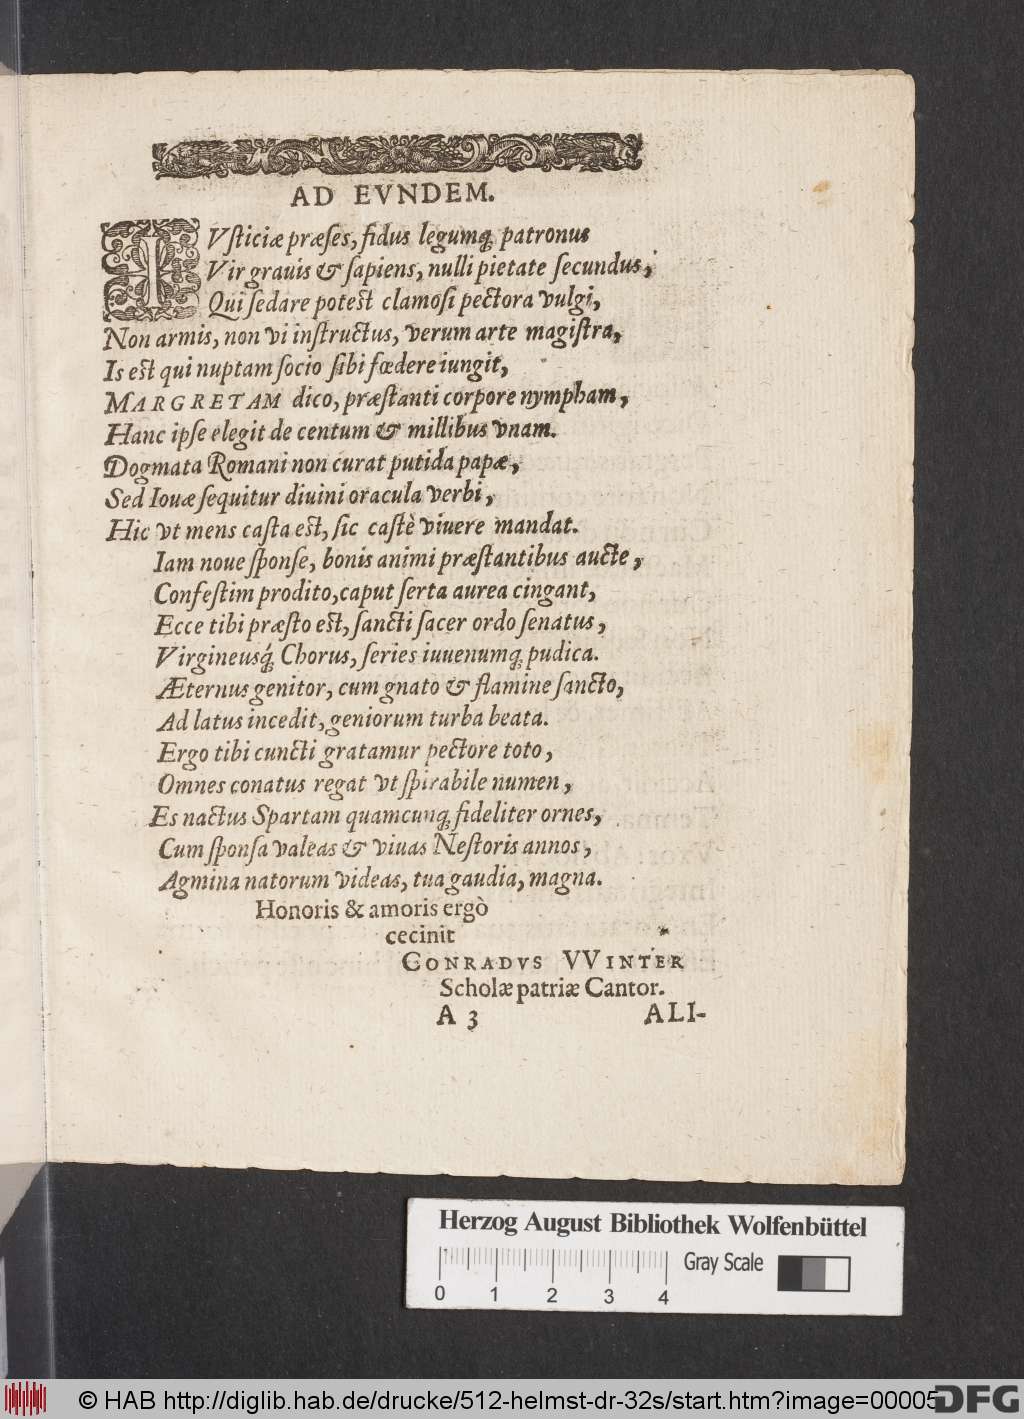 AD EVNDEM.
IVſticiæ præſes, fidus legumq́; patronus
Vir grauis & ſapiens, nulli pietate ſecundus,
Qui ſedare poteſt clamoſi pectora vulgi,
Non armis, non vi inſtructus, verum arte magiſtra,
Is eſt qui nuptam ſocio ſibi fœdere iungit,
MARGRETAM dico, præſtanti corpore nympham,
Hanc ipſe elegit de centum & millibus vnam.
Dogmata Romani non curat putida papæ,
Sed Iouæ ſequitur diuini oracula verbi,
Hic vt mens caſta eſt, ſic caſtè viuere mandat.
Iam noue ſponſe, bonis animi præſtantibus aucte,
Confeſtim prodito, caput ſerta aurea cingant,
Ecce tibi præſto eſt, ſancti ſacer ordo ſenatus,
Virgineusq́; Chorus, ſeries iuuenumq́; pudica.
Æternus genitor, cum gnato & flamine ſancto,
Ad latus incedit, geniorum turba beata.
Ergo tibi cuncti gratamur pectore toto,
Omnes conatus regat vt ſpirabile numen,
Es nactus Spartam quamcunq; fideliter ornes,
Cum ſponſa valeas & viuas Neſtoris annos,
Agmina natorum videas, tua gaudia, magna.
Honoris & amoris ergò
cecinit
CONRADVS VVINTER
Scholæ patriæ Cantor.
A 3 ALI-
Herzog August Bibliothek Wolfenbüttel
Gray Scale
0 1 2 3 4
© HAB http://diglib.hab.de/drucke/512-helmst-dr-32s/start.htm?image=00005
DFG